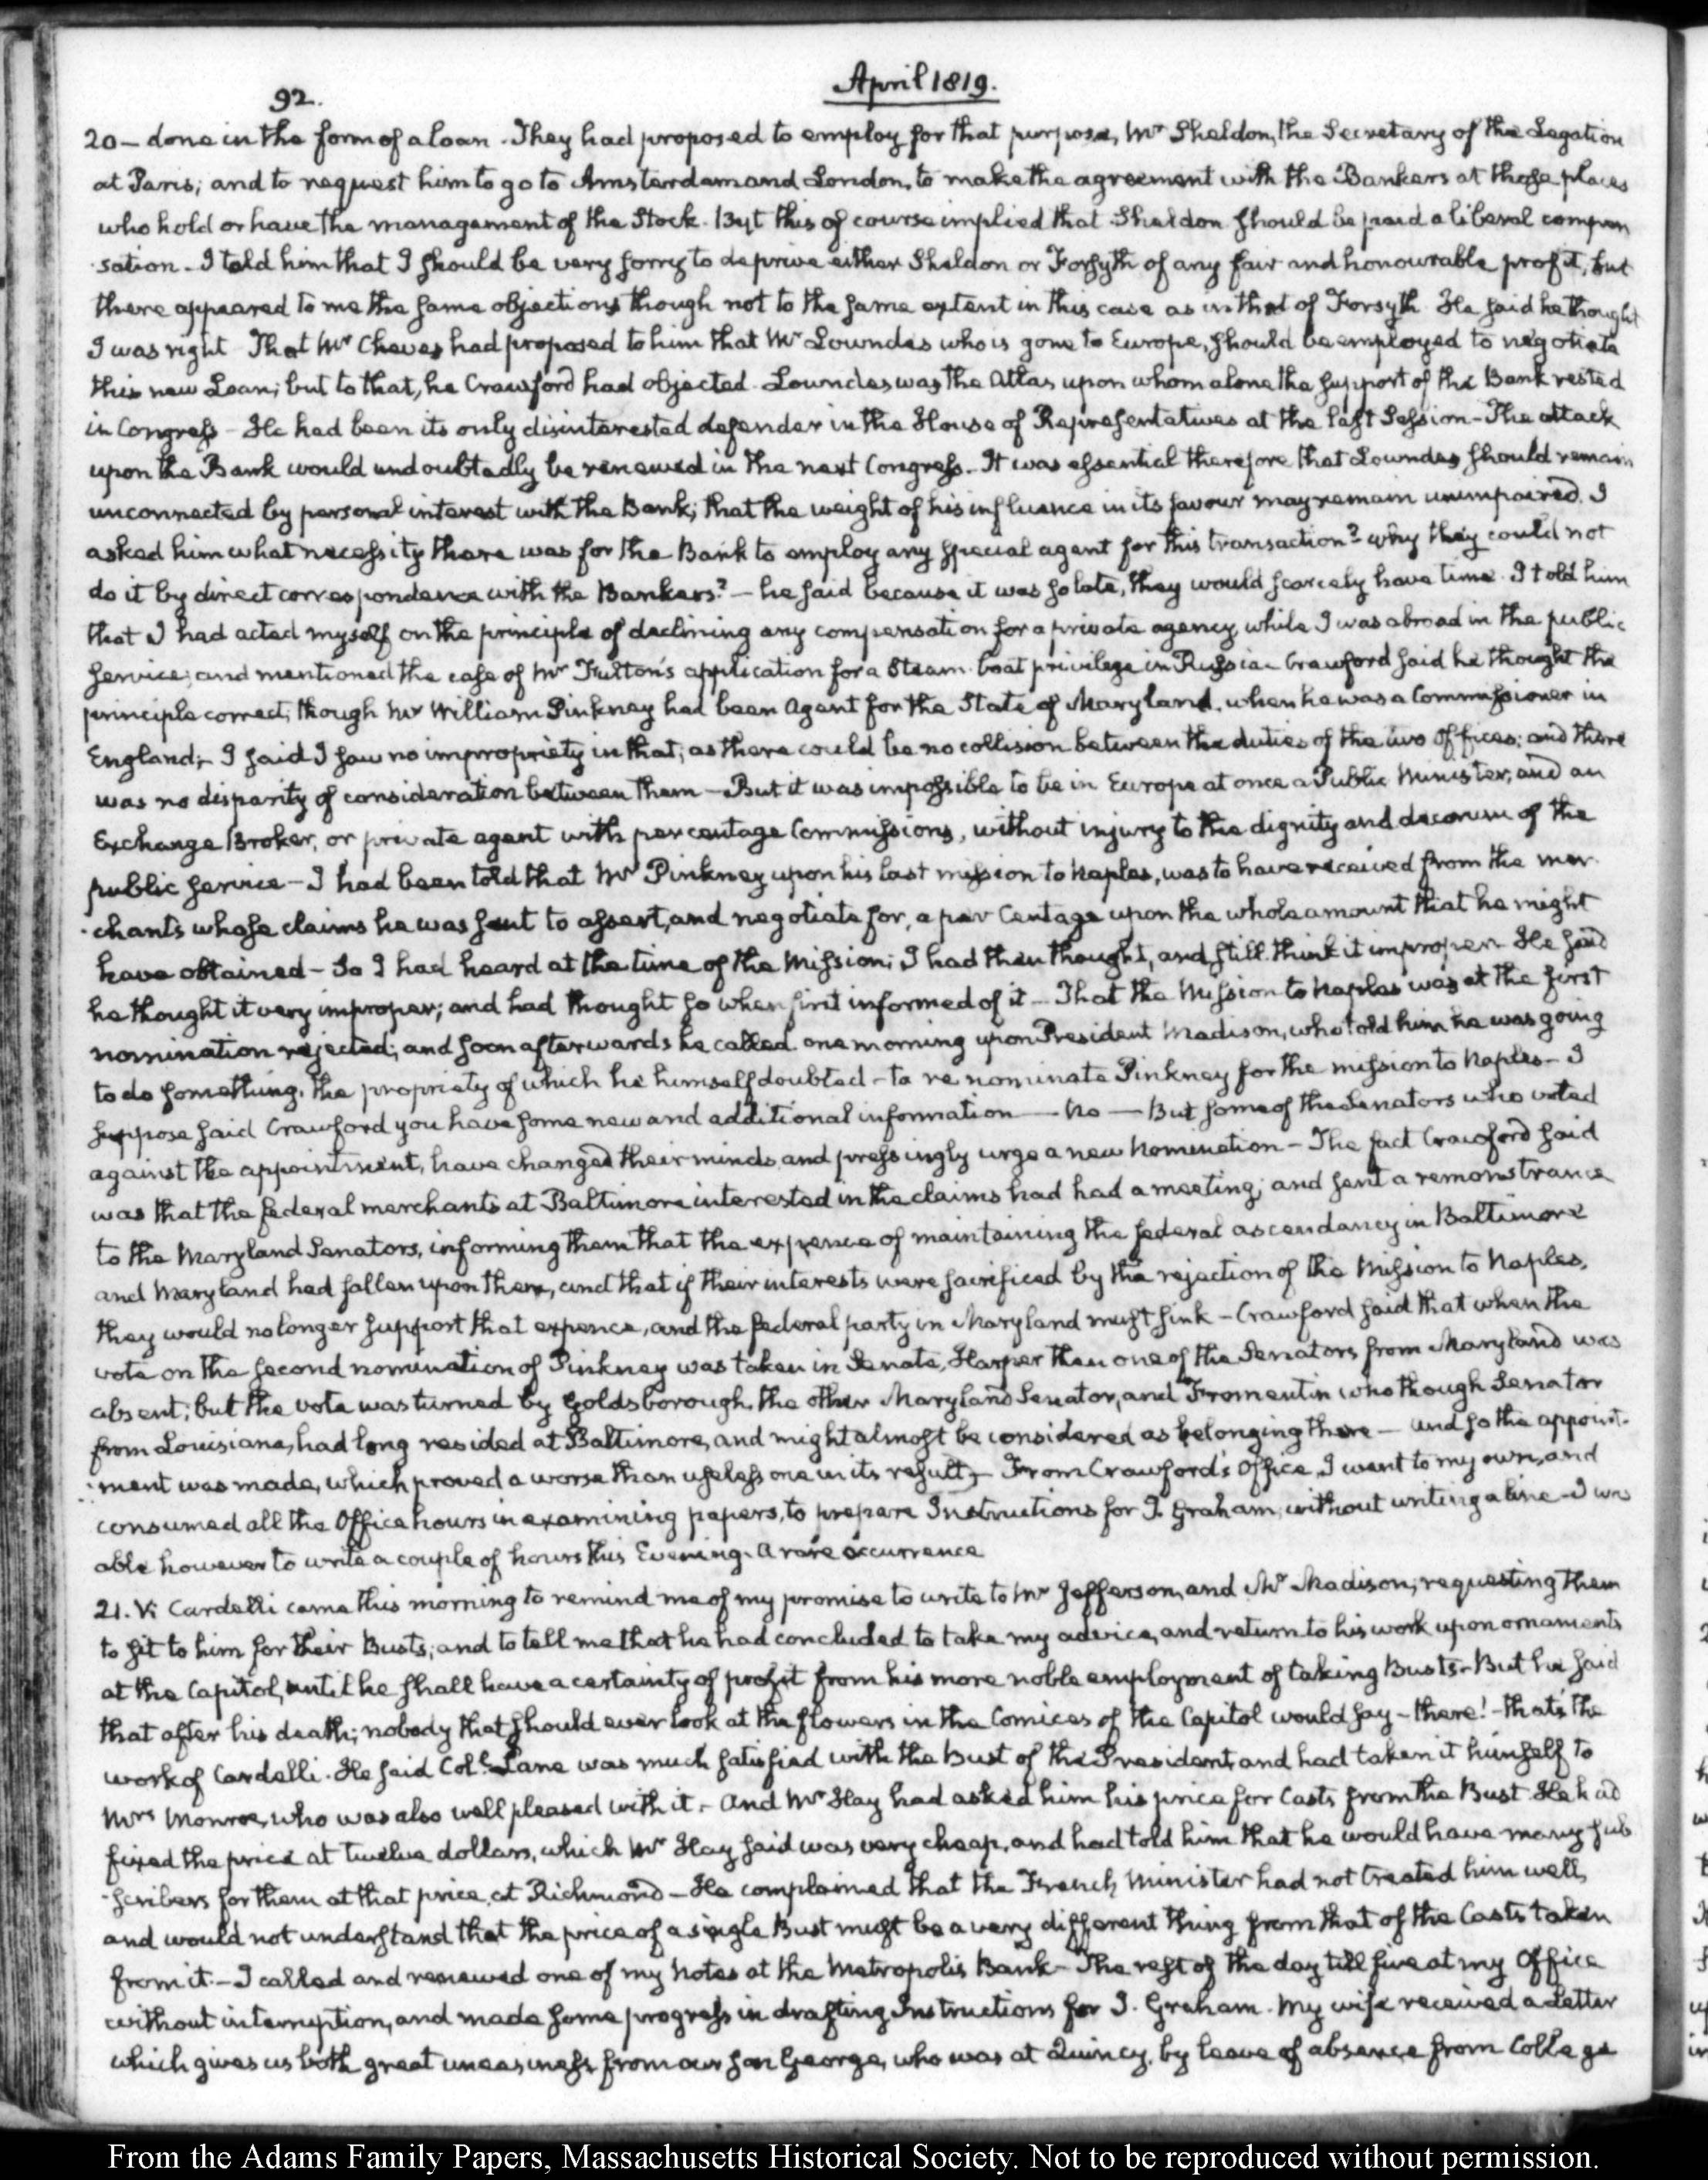 92.
April 1819.
20 — done in the form of a loan. They had proposed to employ for that purpose, Mr Sheldon, the Secretary of the Legation
at Paris; and to request him to go to Amsterdam and London, to make the agreement with the Bankers at those places
who hold or have the management of the Stock. But this of course implied that Sheldon should be paid a liberal compen
-sation. I told him that I should be very sorry to deprive either Sheldon or Forsyth of any fair and honourable profit, but
there appeared to me the same objections though not to the same extent in this case as in that of Forsyth. He said he thought
I was right. That Mr Cheves had proposed to him that Mr Lowndes who is gone to Europe, should be employed to negotiate
this new Loan; but to that, he Crawford had objected. Lowndes was the Atlas upon whom alone the support of the Bank rested
in Congress — He had been its only disinterested defender in the House of Representatives at the last Session — The attack
upon the Bank would undoubtedly be renewed in the next Congress. It was essential therefore that Lowndes should remain
unconnected by personal interest with the Bank; that the weight of his influence in its favour may remain unimpaired. I
asked him what necessity there was for the Bank to employ any special agent for this transaction? why they could not
do it by direct correspondence with the Bankers? — he said because it was so late, they would scarcely have time. I told him
that I had acted myself on the principle of declining any compensation for a private agency, while I was abroad in the public
service; and mentioned the case of Mr Fulton's application for a Steam-boat privilege in Russia. Crawford said he thought the
principle correct, though Mr William Pinkney had been Agent for the State of Maryland, when he was a Commissioner in
England; I said I saw no impropriety in that; as there could be no collision between the duties of the two offices; and there
was no disparity of consideration between them — But it was impossible to be in Europe at once a Public Minister, and an
Exchange Broker, or private agent with percentage Commissions, without injury to the dignity and decorum of the
public service — I had been told that Mr Pinkney upon his last mission to Naples, was to have received from the mer-
-chants whose claims he was sent to assert, and negotiate for, a per Centage upon the whole amount that he might
have obtained — So I had heard at the time of the Mission; I had then thought, and still think it improper. He said
he thought it very improper; and had thought so when first informed of it — That the Mission to Naples was at the first
nomination rejected; and soon afterwards he called one morning upon President Madison, who told him he was going
to do something, the propriety of which he himself doubted — to re nominate Pinkney for the mission to Naples — I
suppose said Crawford you have some new and additional information — No — But some of the Senators who voted
against the appointment, have changed their minds and pressingly urge a new nomination — The fact Crawford said
was that the federal merchants at Baltimore interested in the claims had had a meeting; and sent a remonstrance
to the Maryland Senators, informing them that the expence of maintaining the federal ascendancy in Baltimore
and Maryland had fallen upon them, and that if their interests were sacrificed by the rejection of the Mission to Naples,
they would no longer support that expence, and the federal party in Maryland must sink — Crawford said that when the
vote on the second nomination of Pinkney was taken in Senate, Harper then one of the Senators from Maryland was
absent; but the vote was turned by Goldsborough, the other Maryland Senator, and Fromentin who though Senator
from Louisiana, had long resided at Baltimore, and might almost be considered as belonging there — and so the appoint-
-ment was made, which proved a worse than useless one in its result — From Crawford's Office, I went to my own, and
consumed all the Office hours in examining papers, to prepare Instructions for J. Graham, without writing a line — I was
able however to write a couple of hours this Evening. A rare occurrence
21. VI. Cardelli came this morning to remind me of my promise to write to Mr Jefferson, and Mr Madison, requesting them
to sit to him for their Busts; and to tell me that he had concluded to take my advice, and return to his work upon ornaments
at the Capitol, until he shall have a certainty of profit from his more noble employment of taking Busts — But he said
that after his death; nobody that should ever look at the flowers in the Cornices of the Capitol would say — there! — that's the
work of Cardelli. He said Col. Lane was much satisfied with the bust of the President, and had taken it himself to
Mrs Monroe, who was also well pleased with it — And Mr Hay had asked him his price for Casts from the Bust. He had
fixed the price at twelve dollars, which Mr Hay said was very cheap, and had told him that he would have many sub
-scribers for them at that price at Richmond — He complained that the French Minister had not treated him well,
and would not understand that the price of a single Bust must be a very different thing from that of the Casts taken
from it — I called and renewed one of my Notes at the Metropolis Bank — The rest of the day till five at my Office
without interruption, and made some progress in drafting Instructions for J. Graham. My wife received a Letter
which gives us both great uneasiness from our son George, who was at Quincy, by leave of absence from College
From the Adams Family Papers, Massachusetts Historical Society. Not to be reproduced without permission.